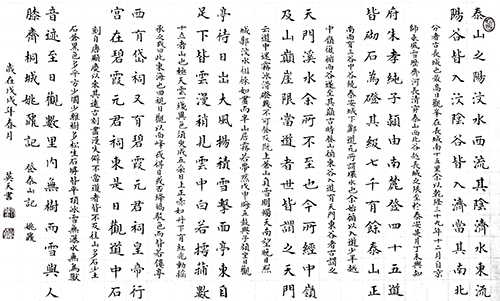 泰山之陽汶水西流其陰濟水東流
陽谷皆入汶陰谷皆入濟當其南北
分者古長城也最高日觀峰在長城南十五里余以乾隆三十九年十二月自京
師乘風雪歷齊河長清穿泰山西北谷越長城之限至於泰安是月丁未與知
府朱孝純子潁由南麓登四十五里道
皆砌石為磴其級七千有餘泰山正
南面有三谷中谷繞泰安城下酈道元所謂環水也余始循以入道少半越
中嶺復循西谷遂至其巔古時登山循東谷入道有天門東谷者古謂之
天門溪水余所不至也今所經中嶺
及山巔崖限當道者世皆謂之天門
云道中迷霧冰滑磴幾不可登及既上蒼山負雪明燭天南望晚日照
城郭汶水徂徠如畫而半山居霧若帶然戊申晦五鼓與子潁坐日觀
亭待日出大風揚積雪擊面亭東自
足下皆雲漫稍見雲中白若摴蒱數
十立者山也極天雲一線異色須臾成五采日上正赤如丹下有紅光動搖
承之或曰此東海也回視日觀以西峰或得日或否絳皓駁色而皆若僂亭
西有岱祠又有碧霞元君祠皇帝行
宮在碧霞元君祠東是日觀道中石
刻自唐顯慶以來其遠古刻盡漫失僻不當道者皆不及往山多石少土
石蒼黑色多平方少圜少雜樹多松生石罅皆平頂冰雪無瀑水無鳥獸
音跡至日觀數里內無樹而雪與人
膝齊桐城姚鼐記 登泰山記 姚鼐
歲在戊戌年春月 英天書